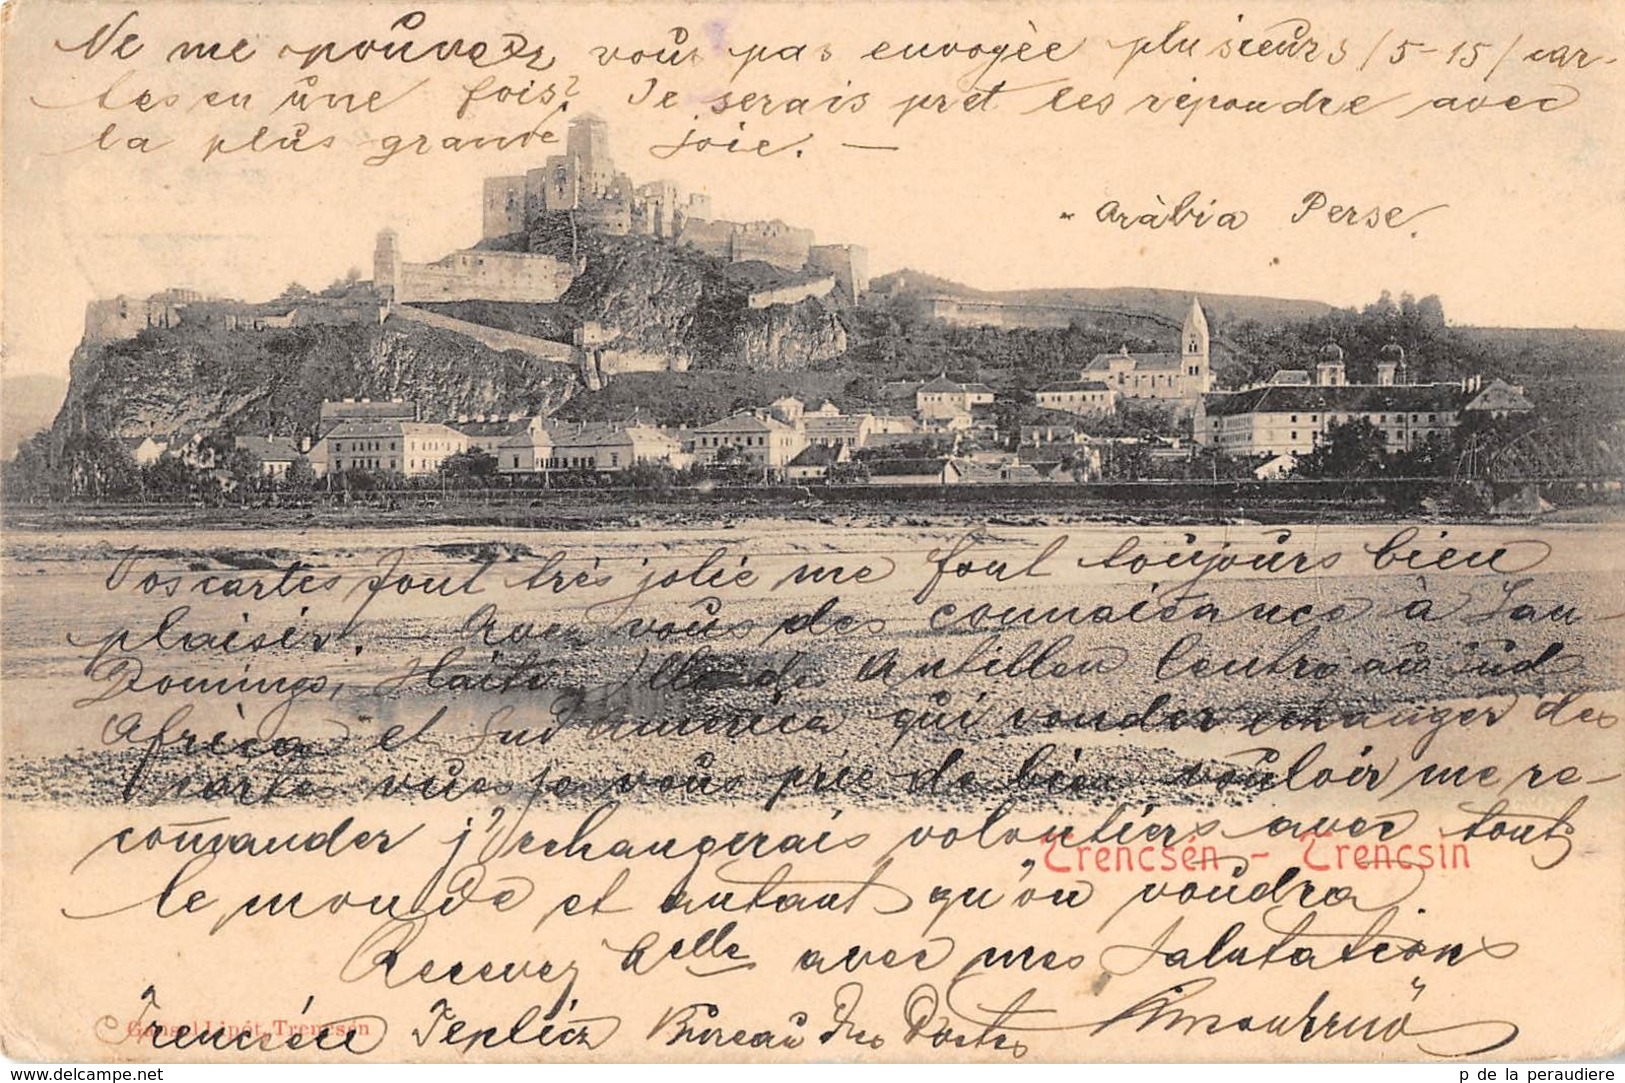 Ne me pouvez vous pas envogèe plusieurs /5-15/ car-
tes en une fois? Je serais prét les répondre avec
la plus grande joie. —
Aràbia Perse.
Vos cartes font trés jolie me font toujours bien
plaisir. — Avez vous des connaisance à San-
Domingo, Haiti, Antillen Centre au Sud
Africa et Sud America qui vouder echanger des
cartes vues je vous prie de bien vouloir me re-
comander j'echangerais volontiers avec touts
le monde et autant qu'on voudra.
Trencsén - Trencsin
Recevez Mlle avec mes Salutations
Gansel Lipót, Trencsén
Trencsén Teplicz Bureau des Postes
www.delcampe.net
p de la peraudiere